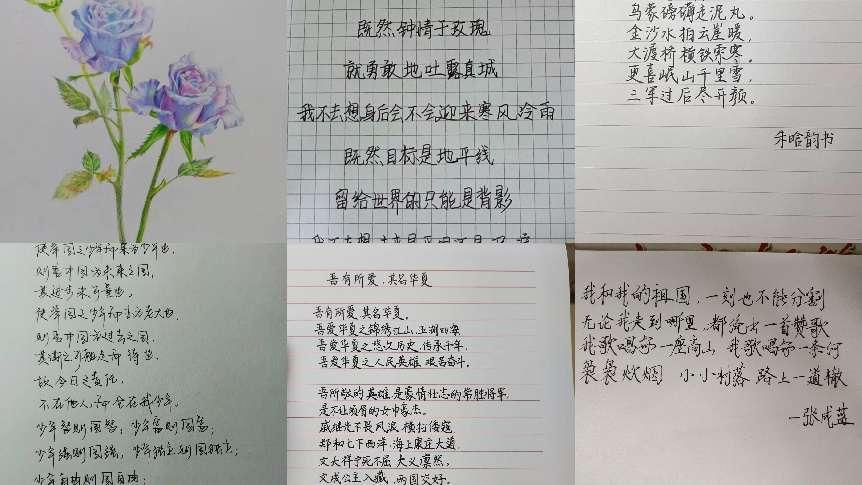 既然钟情于玫瑰
就勇敢地吐露真城
我不去想,身后会不会迎来寒风冷雨
既然目标是地平线
留给世界的只能是背影
乌蒙磅礴走泥丸。
金沙水拍云崖暖,
大渡桥横铁索寒。
更喜岷山千里雪,
三军过后尽开颜。
朱晗韵书
则吾中国为未来之国,
其进步未可量也,
则吾中国为过去之国,
故今日之责任,
不在他人,而全在我少年。
少年智则国智;少年富则国富;
少年强则国强,少年独立则国独立;
少年自由则国自由;
吾有所爱,其名华夏
吾有所爱,其名华夏。
吾爱华夏之锦绣江山,亚洲如姿
吾爱华夏之悠久历史,传承千年,
吾爱华夏之人民英雄 艰苦奋斗。
吾所敬的英雄,是豪情壮志的常胜将军,
是不让须眉的女中豪杰。
戚继光不畏风浪 横扫倭寇
郑和七下西洋,海上康庄大道,
文天祥宁死不屈 大义凛然,
文成公主入藏,两国交好。
我和我的祖国,一刻也不能分割
无论我走到哪里,都流出一首赞歌
我歌唱每一座高山 我歌唱每一条河
袅袅炊烟 小小村落 路上一道辙